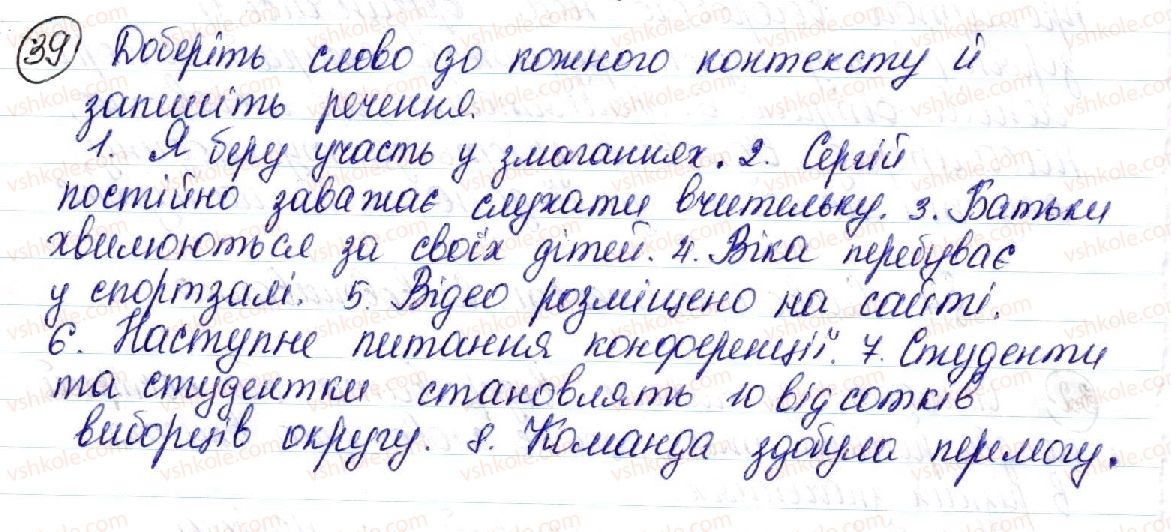 39 Доберіть слово до кожного контексту й
запишіть речення.
1. Я беру участь у змаганнях. 2. Сергій
постійно заважає слухати вчительку. 3. Батьки
хвилюються за своїх дітей. 4. Віка перебуває
у спортзалі. 5. Відео розміщено на сайті.
6. Наступне питання конференції. 7. Студенти
та студентки становлять 10 відсотків
виборців округу. 8. Команда здобула перемогу.